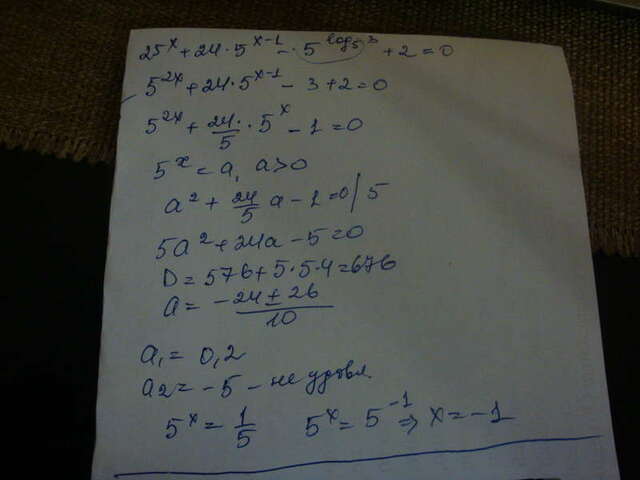 25^x + 24·5^{x-1} - 5^{log_5 3} + 2 = 0
5^{2x} + 24·5^{x-1} - 3 + 2 = 0
5^{2x} + 24/5 · 5^x - 1 = 0
5^x = a, a > 0
a² + 24/5 a - 1 = 0 | 5
5a² + 24a - 5 = 0
D = 576 + 5·5·4 = 676
a = (-24 ± 26)/10
a₁ = 0,2
a₂ = -5 - не удовл.
5^x = 1/5   5^x = 5^{-1} ⇒ x = -1